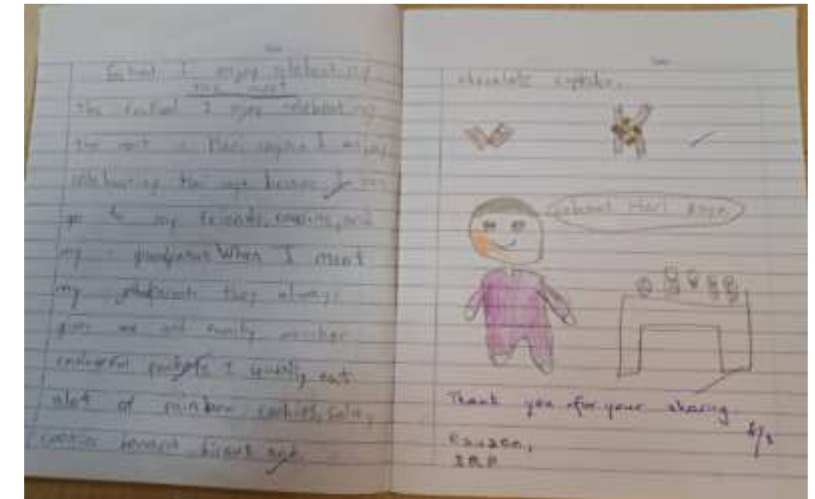 festival I enjoy celebrating
the most
the festival I enjoy celebrating
the most is Hari raya I enjoy
celebrating Hari raya because I can
go to my friends, cousins, and
my grandparents When I meet
my grandparents they always
give me and family member
packets I usually eat
alot of rainbow cookies, cola,
cookies biscuit and
chocolate cupcake.
Selamat Hari Raya
Thank you for your sharing.